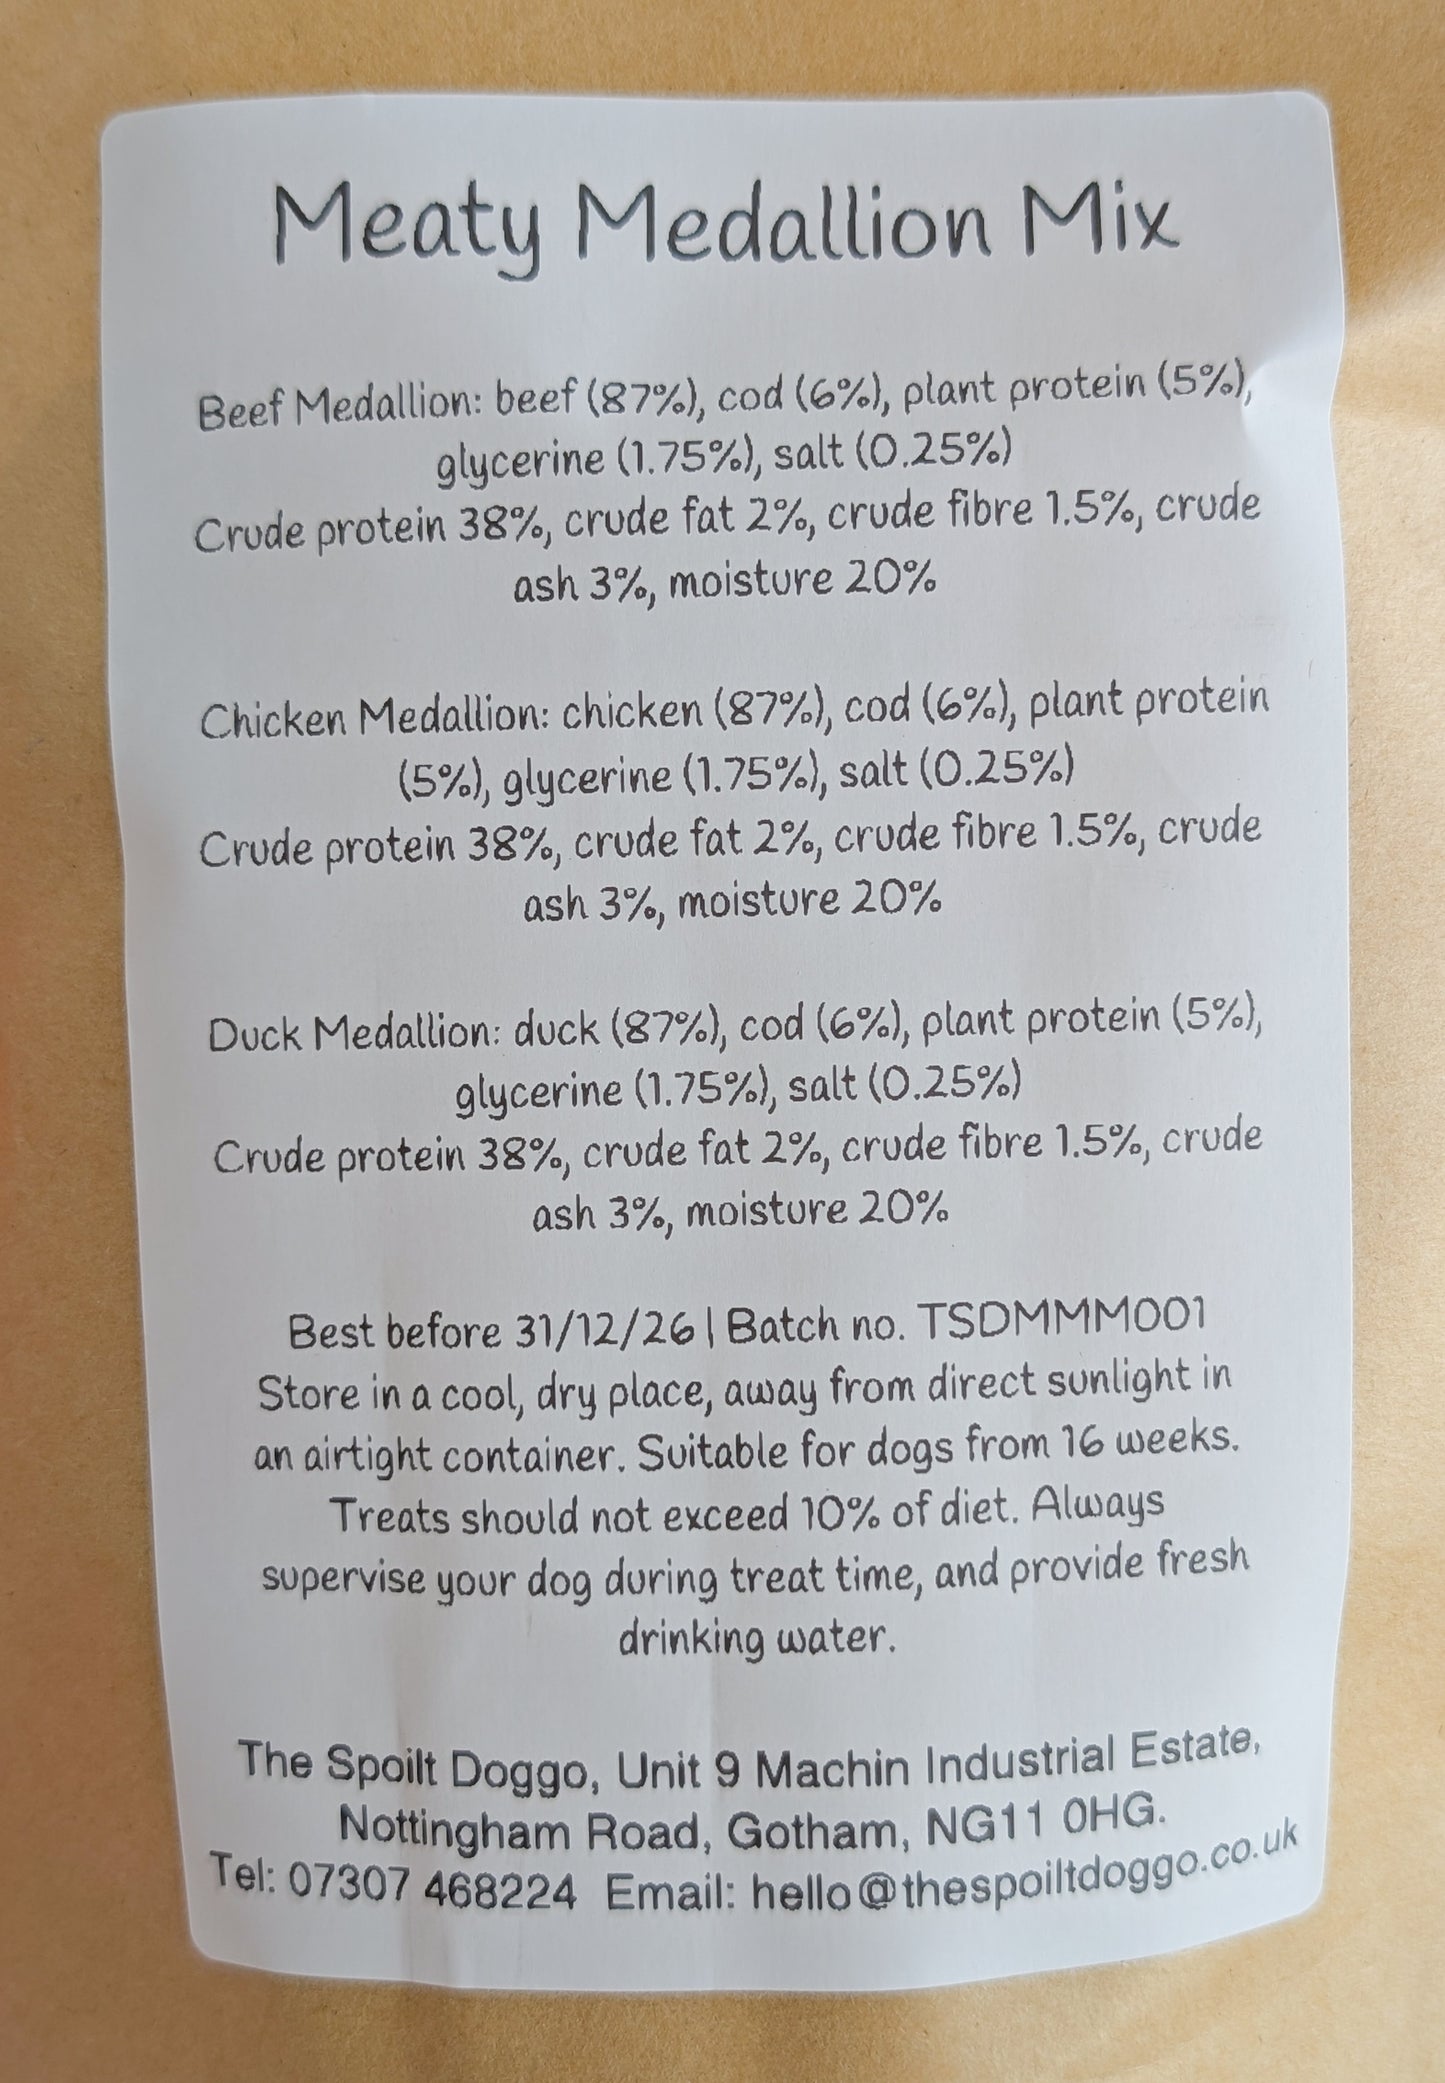 Meaty Medallion Mix
Beef Medallion: beef (87%), cod (6%), plant protein (5%),
glycerine (1.75%), salt (0.25%)
Crude protein 38%, crude fat 2%, crude fibre 1.5%, crude
ash 3%, moisture 20%
Chicken Medallion: chicken (87%), cod (6%), plant protein
(5%), glycerine (1.75%), salt (0.25%)
Crude protein 38%, crude fat 2%, crude fibre 1.5%, crude
ash 3%, moisture 20%
Duck Medallion: duck (87%), cod (6%), plant protein (5%),
glycerine (1.75%), salt (0.25%)
Crude protein 38%, crude fat 2%, crude fibre 1.5%, crude
ash 3%, moisture 20%
Best before 31/12/26 | Batch no. TSDMMM001
Store in a cool, dry place, away from direct sunlight in
an airtight container. Suitable for dogs from 16 weeks.
Treats should not exceed 10% of diet. Always
supervise your dog during treat time, and provide fresh
drinking water.
The Spoilt Doggo, Unit 9 Machin Industrial Estate,
Nottingham Road, Gotham, NG11 0HG.
Tel: 07307 468224 Email: hello@thespoiltdoggo.co.uk